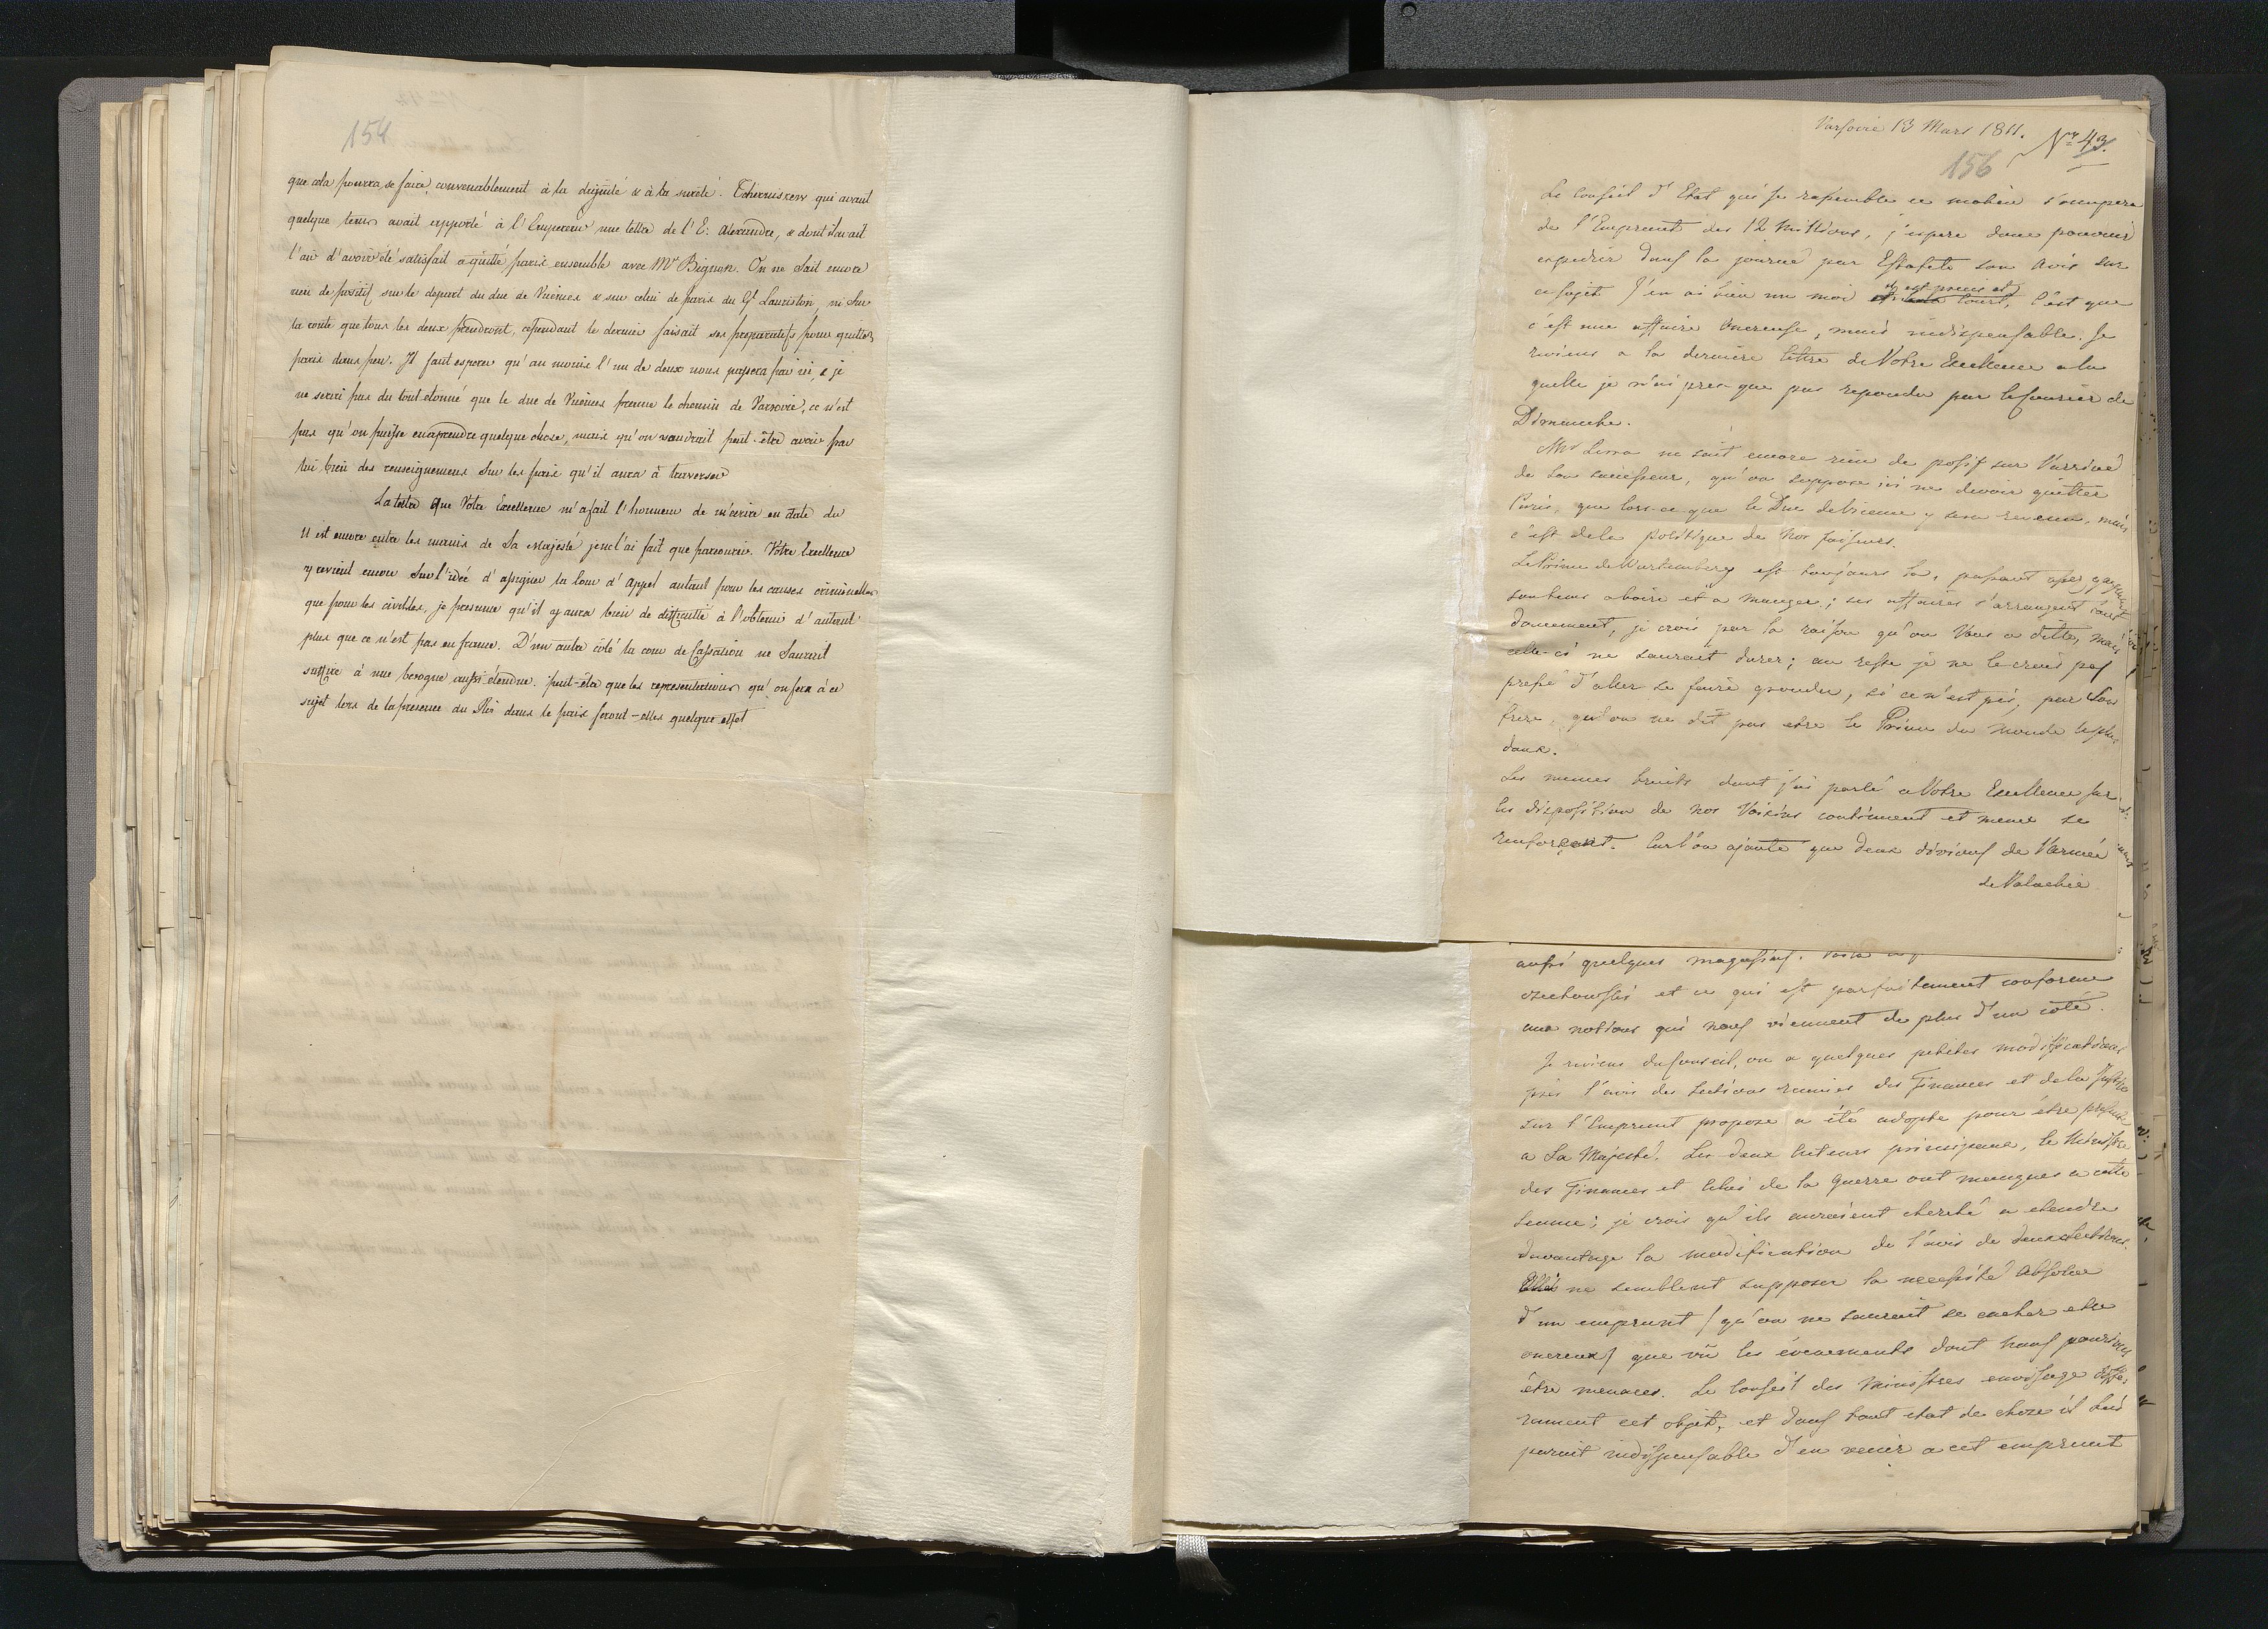 154
que cela pourra se faire convenablement à la dignité & à la sureté. Tchernischew qui avant
quelque tems avait apporté à l'Empereur une lettre de l'E: Alexandre, & dont il avait
l'air d'avoir été satisfait a quitté paris ensemble avec Mr Bignon. On ne sait encore
rien de positif sur le depart du duc de Vicence & sur celui de paris du Gl Lauriston, ni sur
la route que tous les deux prendront, cependant le dernier faisait ses preparatifs pour quitter
paris dans peu. Il faut esperer qu'au moins l'un de deux nous passera par ici, & je
ne serai pas du tout etonné que le duc de Vicence prenne le chemin de Varsovie, ce n'est
pas qu'on puisse en aprendre quelque chose, mais qu'on voudrait peut-être avoir par
lui bien des renseignemens sur les païs qu'il aura à traverser
La lettre que Votre Excellence m'a fait l'honneur de m'ecrire en date du
11 est encore entre les mains de Sa Majesté je ne l'ai fait que parcourir. Votre Excellence
y revient encore sur l'idée d'assigner la Cour d'Appel autant pour les causes criminelles
que pour les civiles, je presume qu'il y aura bien de difficulté à l'obtenir d'autant
plus que ce n'est pas en france. D'un autre côté la cour de Cassation ne saurait
suffire à une besogne aussi étendue. peut-être que les representations qu'on fera à ce
sujet lors de la présence du Roi dans le païs feront-elles quelque effet
Varsovie 13 Mars 1811. Nr 43.
156
Le Conseil d'Etat qui se rassemble ce matin s'occupera
de l'Emprunt des 12 Millions, j'espere donc pouvoir
expedier dans la journée par Estafete son Avis sur
ce sujet J'en ai bien un moi court, c'est que
c'est une affaire onereuse, mais indispensable. Je
reviens a la derniere lettre de Votre Excellence a la
quelle je n'ai presque pas repondu par le Courier de
Dimanche.
Mr Serra ne sait encore rien de positif sur l'arrivée
de son successeur, qu'on suppose ici ne devoir quitter
Paris, que lors-ce que le Duc de Vicence y sera revenu, mais
c'est de la politique de nos faiseurs.
Le Prince de Wurtemberg est toujours la, passant assez
son tems a boire et a manger; ses affaires s'arrangent
doucement, je crois par la raison qu'on Vous a dite, mais
celle-ci ne saurait durer; au reste je ne le crois pas
pressé d'aller se faire gronder, si ce n'est pis, par Son
frere, qu'on ne dit pas etre le Prince du Monde le plus
doux.
Les memes bruits dont j'ai parlé a Votre Excellence sur
les disposition de nos Voisins continuent et meme se
renforcent. Car l'on ajoute que deux divisions de l'armée
de Valachie
aussi quelques magasins.
et ce qui est parfaitement conforme
aux notions qui nous viennent de plus d'un coté.
Je reviens du Conseil, ou a quelques petites modifications
près l'avis des Sections reunies des Finances et de la Justice
sur l'Emprunt proposé a été adopté pour être presenté
a Sa Majesté. Les deux Acteurs principaux, le Ministre
des Finances et celui de la Guerre ont manqués a cette
seance; je crois qu'ils auraient cherché a etendre
davantage la modification de l'avis de deux Sections.
Elles ne semblent supposer la necessité absolue
d'un emprunt (qu'on ne saurait se cacher etre
onereux) que vû les évenements dont nous pourrions
être menacés. Le Conseil des Ministres envisage diffe-
rament cet objet, et dans tout etat de chose il lui
parait indispensable d'en venir a cet emprunt